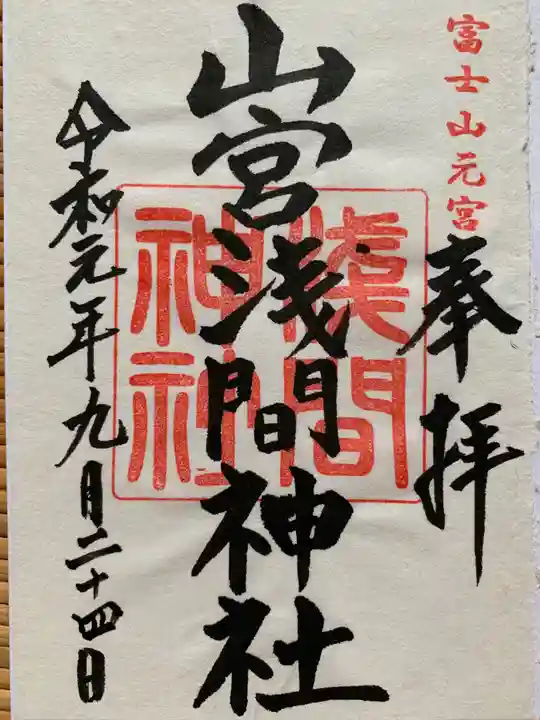 富士山元宮
奉拝
山宮浅間神社
淺間神社
令和元年九月二十四日